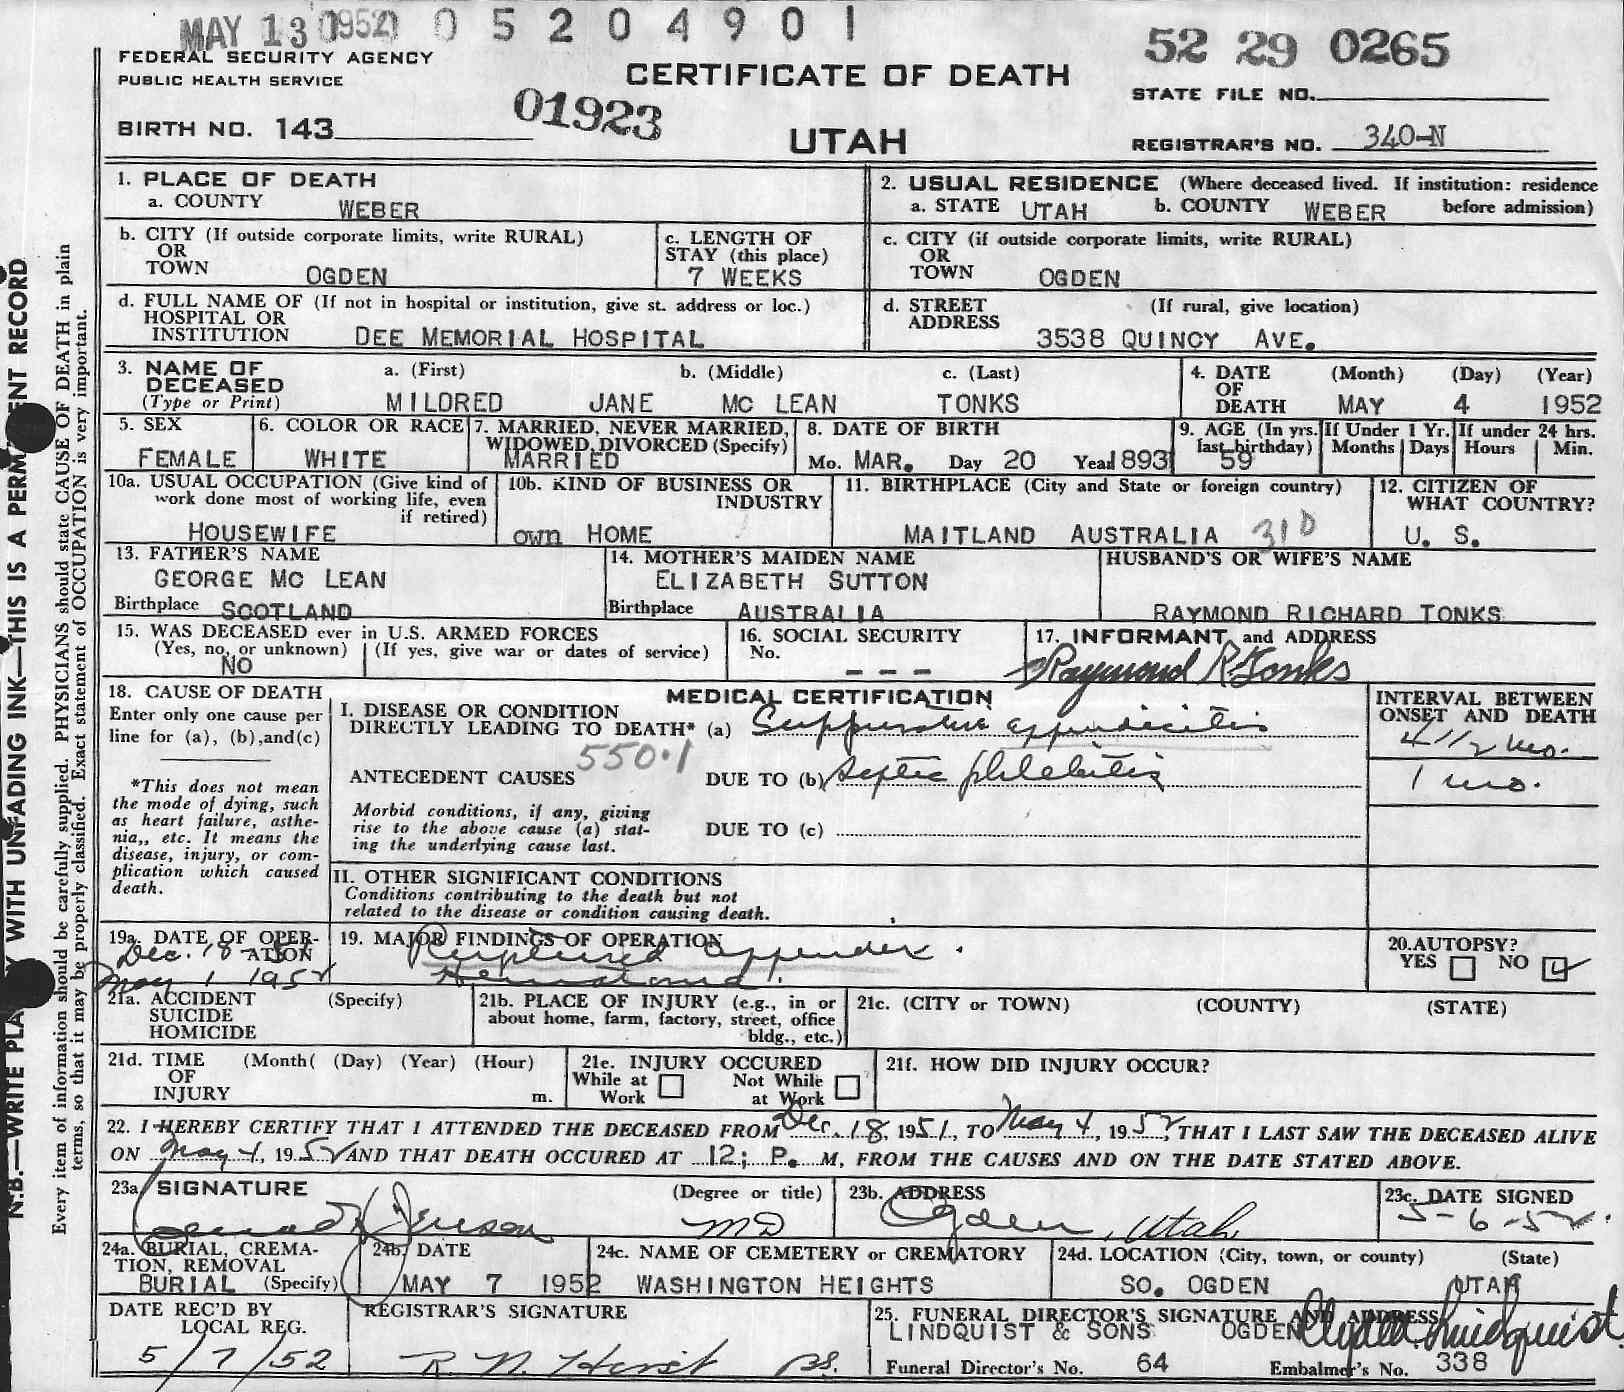 MAY 13 1952 0 5 2 0 4 9 0 1
52 29 0265
FEDERAL SECURITY AGENCY
PUBLIC HEALTH SERVICE
CERTIFICATE OF DEATH
STATE FILE NO.
01923
BIRTH NO. 143
UTAH
REGISTRAR'S NO. 340-N
1. PLACE OF DEATH
a. COUNTY WEBER
2. USUAL RESIDENCE (Where deceased lived. If institution: residence before admission)
a. STATE UTAH b. COUNTY WEBER
b. CITY (If outside corporate limits, write RURAL)
OR
TOWN OGDEN
c. LENGTH OF
STAY (this place)
7 WEEKS
c. CITY (if outside corporate limits, write RURAL)
OR
TOWN OGDEN
d. FULL NAME OF (If not in hospital or institution, give st. address or loc.)
HOSPITAL OR
INSTITUTION DEE MEMORIAL HOSPITAL
d. STREET (If rural, give location)
ADDRESS 3538 QUINCY AVE.
3. NAME OF
DECEASED
(Type or Print)
a. (First) b. (Middle) c. (Last)
MILDRED JANE MC LEAN TONKS
4. DATE
OF
DEATH
(Month) (Day) (Year)
MAY 4 1952
5. SEX
FEMALE
6. COLOR OR RACE
WHITE
7. MARRIED, NEVER MARRIED,
WIDOWED, DIVORCED (Specify)
MARRIED
8. DATE OF BIRTH
Mo. MAR. Day 20 Year 1893
9. AGE (In yrs.
last birthday)
59
If Under 1 Yr.
Months Days
If under 24 hrs.
Hours Min.
10a. USUAL OCCUPATION (Give kind of
work done most of working life, even
if retired)
HOUSEWIFE
10b. KIND OF BUSINESS OR
INDUSTRY
own HOME
11. BIRTHPLACE (City and State or foreign country)
MAITLAND AUSTRALIA 31D
12. CITIZEN OF
WHAT COUNTRY?
U. S.
13. FATHER'S NAME
GEORGE MC LEAN
Birthplace SCOTLAND
14. MOTHER'S MAIDEN NAME
ELIZABETH SUTTON
Birthplace AUSTRALIA
HUSBAND'S OR WIFE'S NAME
RAYMOND RICHARD TONKS
15. WAS DECEASED ever in U.S. ARMED FORCES
(Yes, no, or unknown) (If yes, give war or dates of service)
NO
16. SOCIAL SECURITY
No. - - -
17. INFORMANT and ADDRESS
Raymond R. Tonks
18. CAUSE OF DEATH
Enter only one cause per
line for (a), (b),and(c)
*This does not mean
the mode of dying, such
as heart failure, asthe-
nia,, etc. It means the
disease, injury, or com-
plication which caused
death.
MEDICAL CERTIFICATION
I. DISEASE OR CONDITION
DIRECTLY LEADING TO DEATH* (a) Suppurative appendicitis
550.1
ANTECEDENT CAUSES DUE TO (b) Septic phlebitis
Morbid conditions, if any, giving
rise to the above cause (a) stat-
ing the underlying cause last.
DUE TO (c)
INTERVAL BETWEEN
ONSET AND DEATH
4 1/2 mo.
1 mo.
II. OTHER SIGNIFICANT CONDITIONS
Conditions contributing to the death but not
related to the disease or condition causing death.
19a. DATE OF OPER-
ATION
Dec. 18
May 1 1952
19. MAJOR FINDINGS OF OPERATION
Ruptured appendix.
20. AUTOPSY?
YES NO
21a. ACCIDENT (Specify)
SUICIDE
HOMICIDE
21b. PLACE OF INJURY (e.g., in or
about home, farm, factory, street, office
bldg., etc.)
21c. (CITY or TOWN) (COUNTY) (STATE)
21d. TIME (Month( (Day) (Year) (Hour)
OF
INJURY m.
21e. INJURY OCCURED
While at
Work
Not While
at Work
21f. HOW DID INJURY OCCUR?
22. I HEREBY CERTIFY THAT I ATTENDED THE DECEASED FROM Dec. 18, 1951, TO May 4, 1952, THAT I LAST SAW THE DECEASED ALIVE
ON May 4, 1952 AND THAT DEATH OCCURED AT 12; P. M, FROM THE CAUSES AND ON THE DATE STATED ABOVE.
23a. SIGNATURE (Degree or title)
Conrad Jenson MD
23b. ADDRESS
Ogden, Utah
23c. DATE SIGNED
5-6-52.
24a. BURIAL, CREMA-
TION, REMOVAL
BURIAL (Specify)
24b. DATE
MAY 7 1952
24c. NAME OF CEMETERY or CREMATORY
WASHINGTON HEIGHTS
24d. LOCATION (City, town, or county) (State)
SO. OGDEN UTAH
DATE REC'D BY
LOCAL REG.
5/7/52
REGISTRAR'S SIGNATURE
R. N. Hirst
25. FUNERAL DIRECTOR'S SIGNATURE AND ADDRESS
LINDQUIST & SONS OGDEN Clyde Lindquist
Funeral Director's No. 64 Embalmer's No. 338
N.B.—WRITE PLA Y WITH UNFADING INK—THIS IS A PERM ENT RECORD
Every item of information should be carefully supplied. PHYSICIANS should state CAUSE OF DEATH in plain
terms, so that it may be properly classified. Exact statement of OCCUPATION is very important.